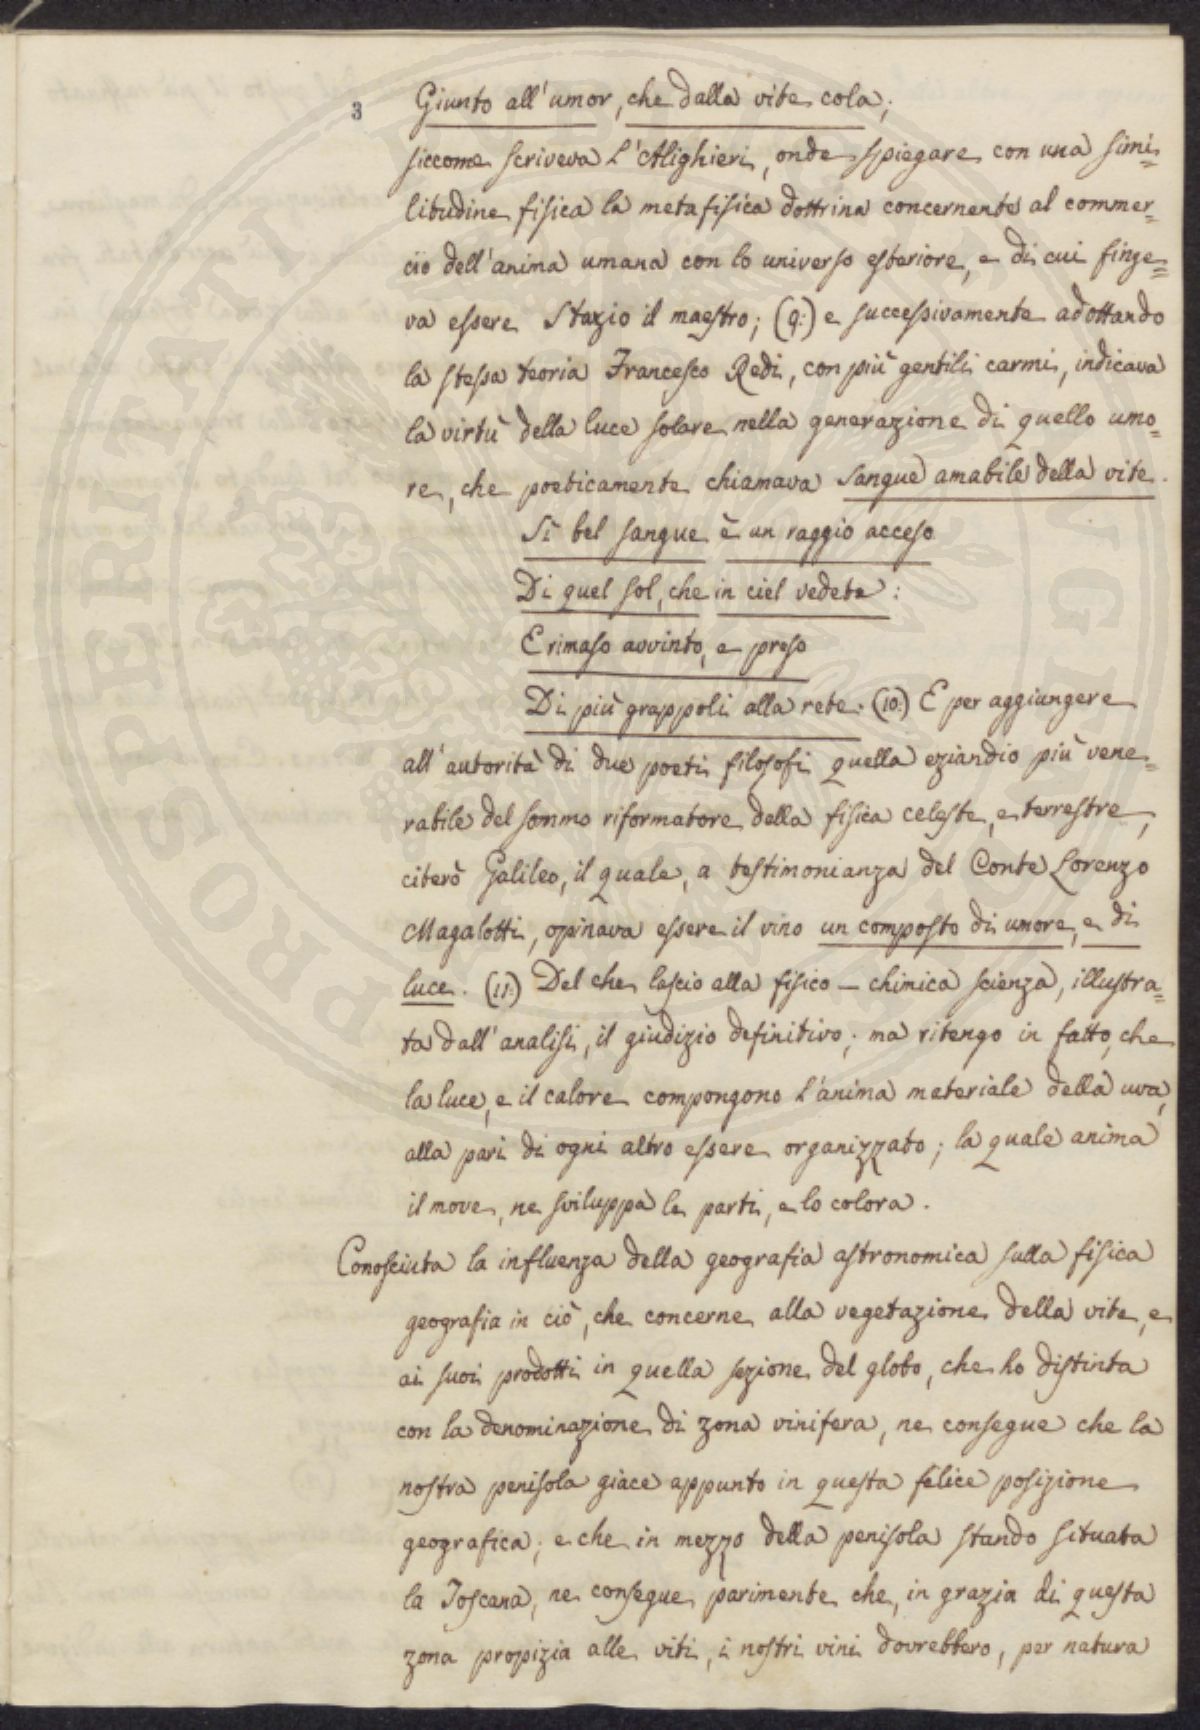 3
Giunto all'umor, che dalla vite cola;
siccome scriveva l'Alighieri, onde spiegare con una simi=
litudine fisica la metafisica dottrina concernente al commer=
cio dell'anima umana con lo universo esteriore, e di cui finge=
va essere Stazio il maestro; (9:) e successivamente adottando
la stessa teoria Francesco Redi, con più gentili carmi, indicava
la virtù della luce solare nella generazione di quello umo=
re, che poeticamente chiamava sangue amabile della vite.
Sì bel sangue è un raggio acceso
Di quel sol, che in ciel vedete:
E rimaso avvinto, e preso
Di più grappoli alla rete. (10:) E per aggiungere
all'autorità di due poeti filosofi quella eziandio più vene=
rabile del sommo riformatore della fisica celeste, e terrestre,
citerò Galileo, il quale, a testimonianza del Conte Lorenzo
Magalotti, opinava essere il vino un composto di umore, e di
luce. (11:) Del che lascio alla fisico – chimica scienza, illustra=
ta dall'analisi, il giudizio definitivo; ma ritengo in fatto, che
la luce, e il calore compongono l'anima materiale della uva,
alla pari di ogni altro essere organizzato; la quale anima
il move, ne sviluppa le parti, e lo colora.
Conosciuta la influenza della geografia astronomica sulla fisica
geografia in ciò, che concerne alla vegetazione della vite, e
ai suoi prodotti in quella sezione del globo, che ho distinta
con la denominazione di zona vinifera, ne consegue che la
nostra penisola giace appunto in questa felice posizione
geografica; e che in mezzo della penisola stando situata
la Toscana, ne consegue parimente che, in grazia di questa
zona propizia alle viti, i nostri vini dovrebbero, per natura
PROSPERITATI PUBLICAE AUGENDAE